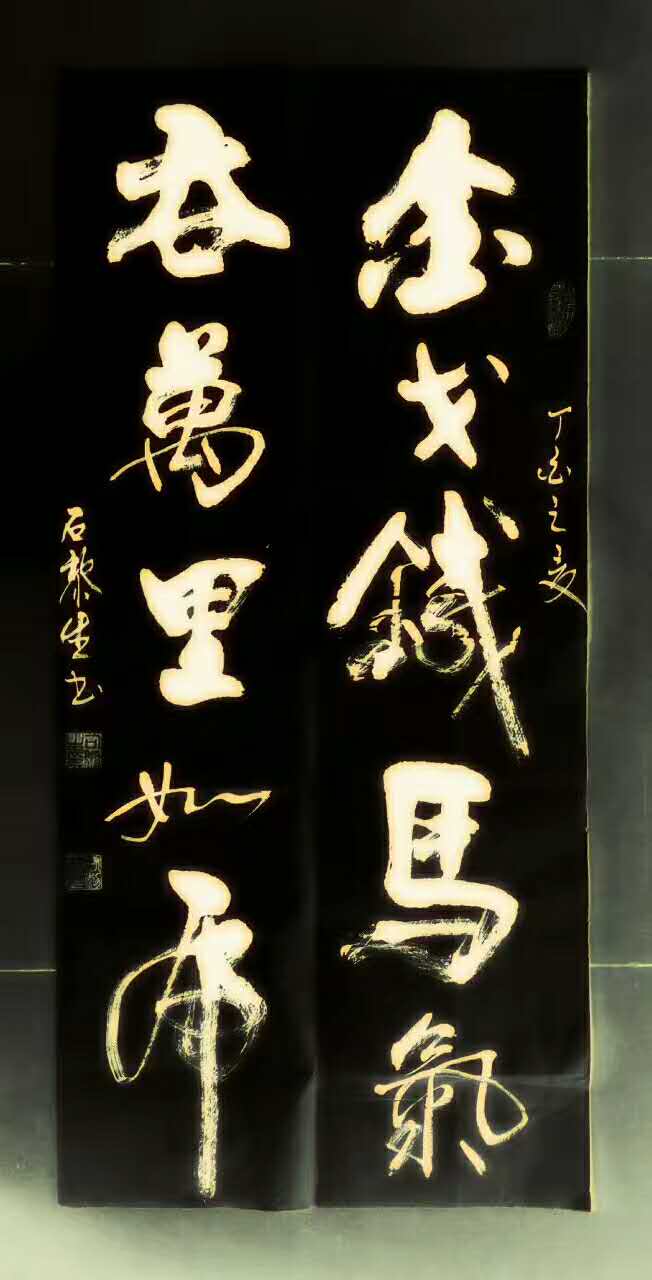 丁酉之夏
金戈鐵馬氣
吞萬里如虎
石黎生书